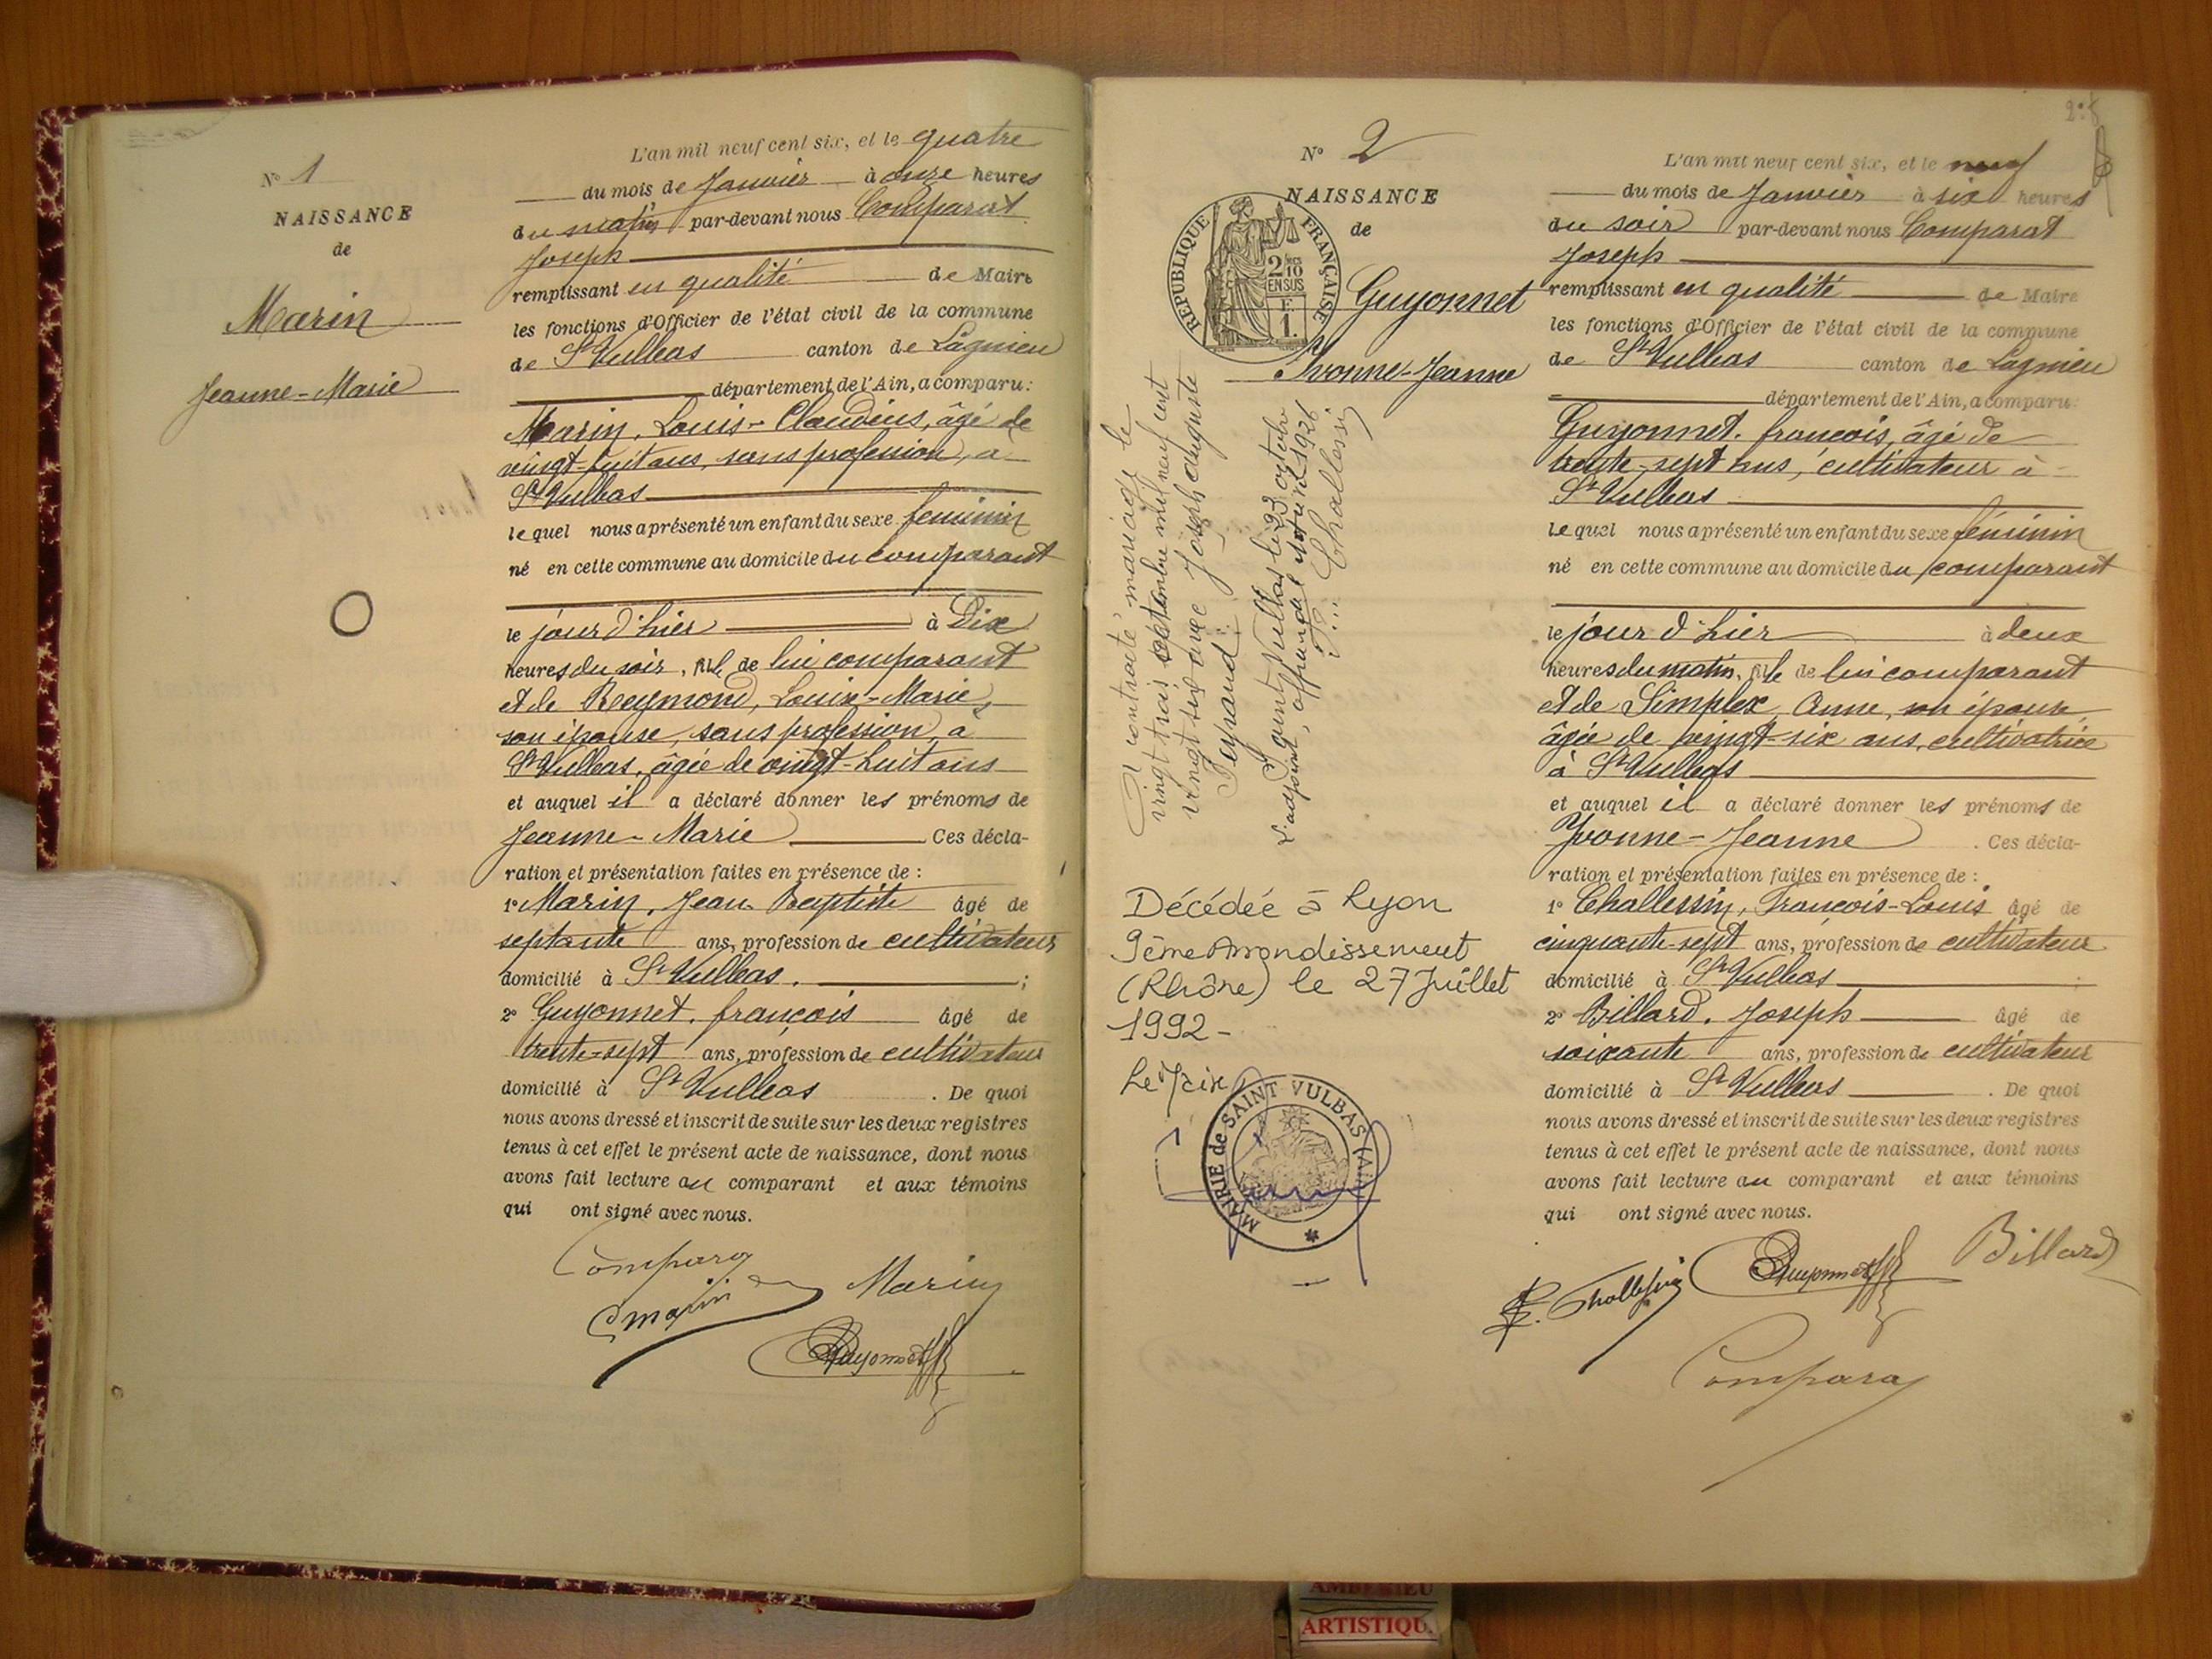 N° 1
NAISSANCE
de
Marin
Jeanne-Marie
L'an mil neuf cent six, et le quatre
du mois de Janvier à onze heures
du matin par-devant nous Comparat
Joseph
remplissant en qualité de Maire
les fonctions d'Officier de l'état civil de la commune
de St Vulbas canton de Lagnieu
département de l'Ain, a comparu:
Marin, Louis-Claudius, âgé de
vingt-huit ans, sans profession, à
St Vulbas
lequel nous a présenté un enfant du sexe feminin
né en cette commune au domicile du comparant
le jour d'hier à Dix
heures du soir, fille de lui comparant
et de Reymond, Louise-Marie,
son épouse, sans profession, à
St Vulbas, âgée de vingt-huit ans
et auquel il a déclaré donner les prénoms de
Jeanne-Marie Ces décla-
ration et présentation faites en présence de :
1° Marin, Jean-Baptiste âgé de
septante ans, profession de cultivateur
domicilié à St Vulbas. ;
2° Guyonnet, françois âgé de
trente-sept ans, profession de cultivateur
domicilié à St Vulbas. De quoi
nous avons dressé et inscrit de suite sur les deux registres
tenus à cet effet le présent acte de naissance, dont nous
avons fait lecture au comparant et aux témoins
qui ont signé avec nous.
Comparat
C marin Marin
Guyonnet
N° 2
NAISSANCE
de
REPUBLIQUE FRANÇAISE
2/10
EN SUS
1.
Guyonnet
Yvonne-Jeanne
A contracté mariage le
vingt trois octobre mil neuf cent
vingt six avec Joseph auguste
Peyrand
St Vulbas le 23 octobre 1926
L'adjoint,
Challessin
Décédée à Lyon
9ème Arrondissement
(Rhône) le 27 Juillet
1992 -
Le Maire
MAIRIE de SAINT VULBAS (AIN)
L'an mil neuf cent six, et le neuf
du mois de Janvier à six heures
du soir par-devant nous Comparat
Joseph
remplissant en qualité de Maire
les fonctions d'Officier de l'état civil de la commune
de St Vulbas canton de Lagnieu
département de l'Ain, a comparu:
Guyonnet, françois, âgé de
trente-sept ans, cultivateur à
St Vulbas
lequel nous a présenté un enfant du sexe féminin
né en cette commune au domicile du comparant
le jour d'hier à deux
heures du matin, fille de lui comparant
et de Simplex, Anne, son épouse,
âgée de vingt-six ans, cultivatrice
à St Vulbas
et auquel il a déclaré donner les prénoms de
Yvonne-Jeanne. Ces décla-
ration et présentation faites en présence de :
1° Challessin, François-Louis âgé de
cinquante-sept ans, profession de cultivateur
domicilié à St Vulbas ;
2° Billard, Joseph âgé de
soixante ans, profession de cultivateur
domicilié à St Vulbas. De quoi
nous avons dressé et inscrit de suite sur les deux registres
tenus à cet effet le présent acte de naissance, dont nous
avons fait lecture au comparant et aux témoins
qui ont signé avec nous.
F. Challessin Guyonnet Billard
Comparat
AMBERIEU
ARTISTIQU